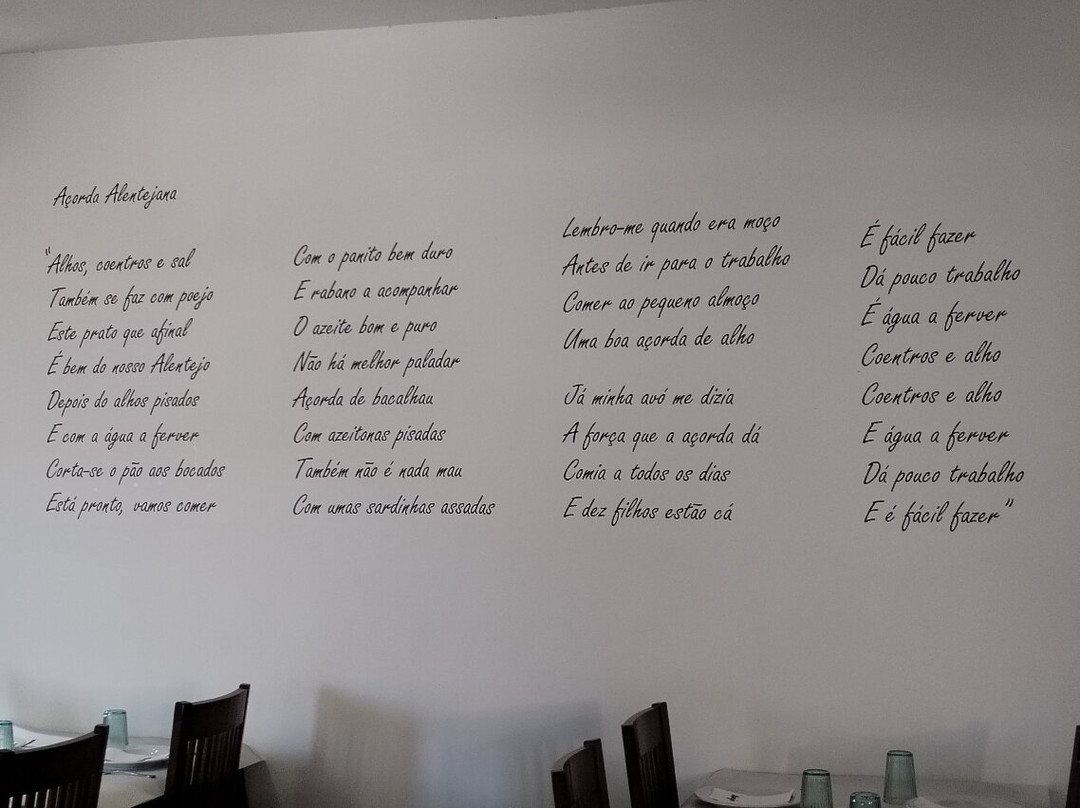 Açorda Alentejana
"Alhos, coentros e sal
Também se faz com poejo
Este prato que afinal
É bem do nosso Alentejo
Depois do alhos pisados
E com a água a ferver
Corta-se o pão aos bocados
Está pronto, vamos comer
Com o panito bem duro
E rabano a acompanhar
O azeite bom e puro
Não há melhor paladar
Açorda de bacalhau
Com azeitonas pisadas
Também não é nada mau
Com umas sardinhas assadas
Lembro-me quando era moço
Antes de ir para o trabalho
Comer ao pequeno almoço
Uma boa açorda de alho
Já minha avó me dizia
A força que a açorda dá
Comia a todos os dias
E dez filhos estão cá
É fácil fazer
Dá pouco trabalho
É água a ferver
Coentros e alho
Coentros e alho
E água a ferver
Dá pouco trabalho
E é fácil fazer"